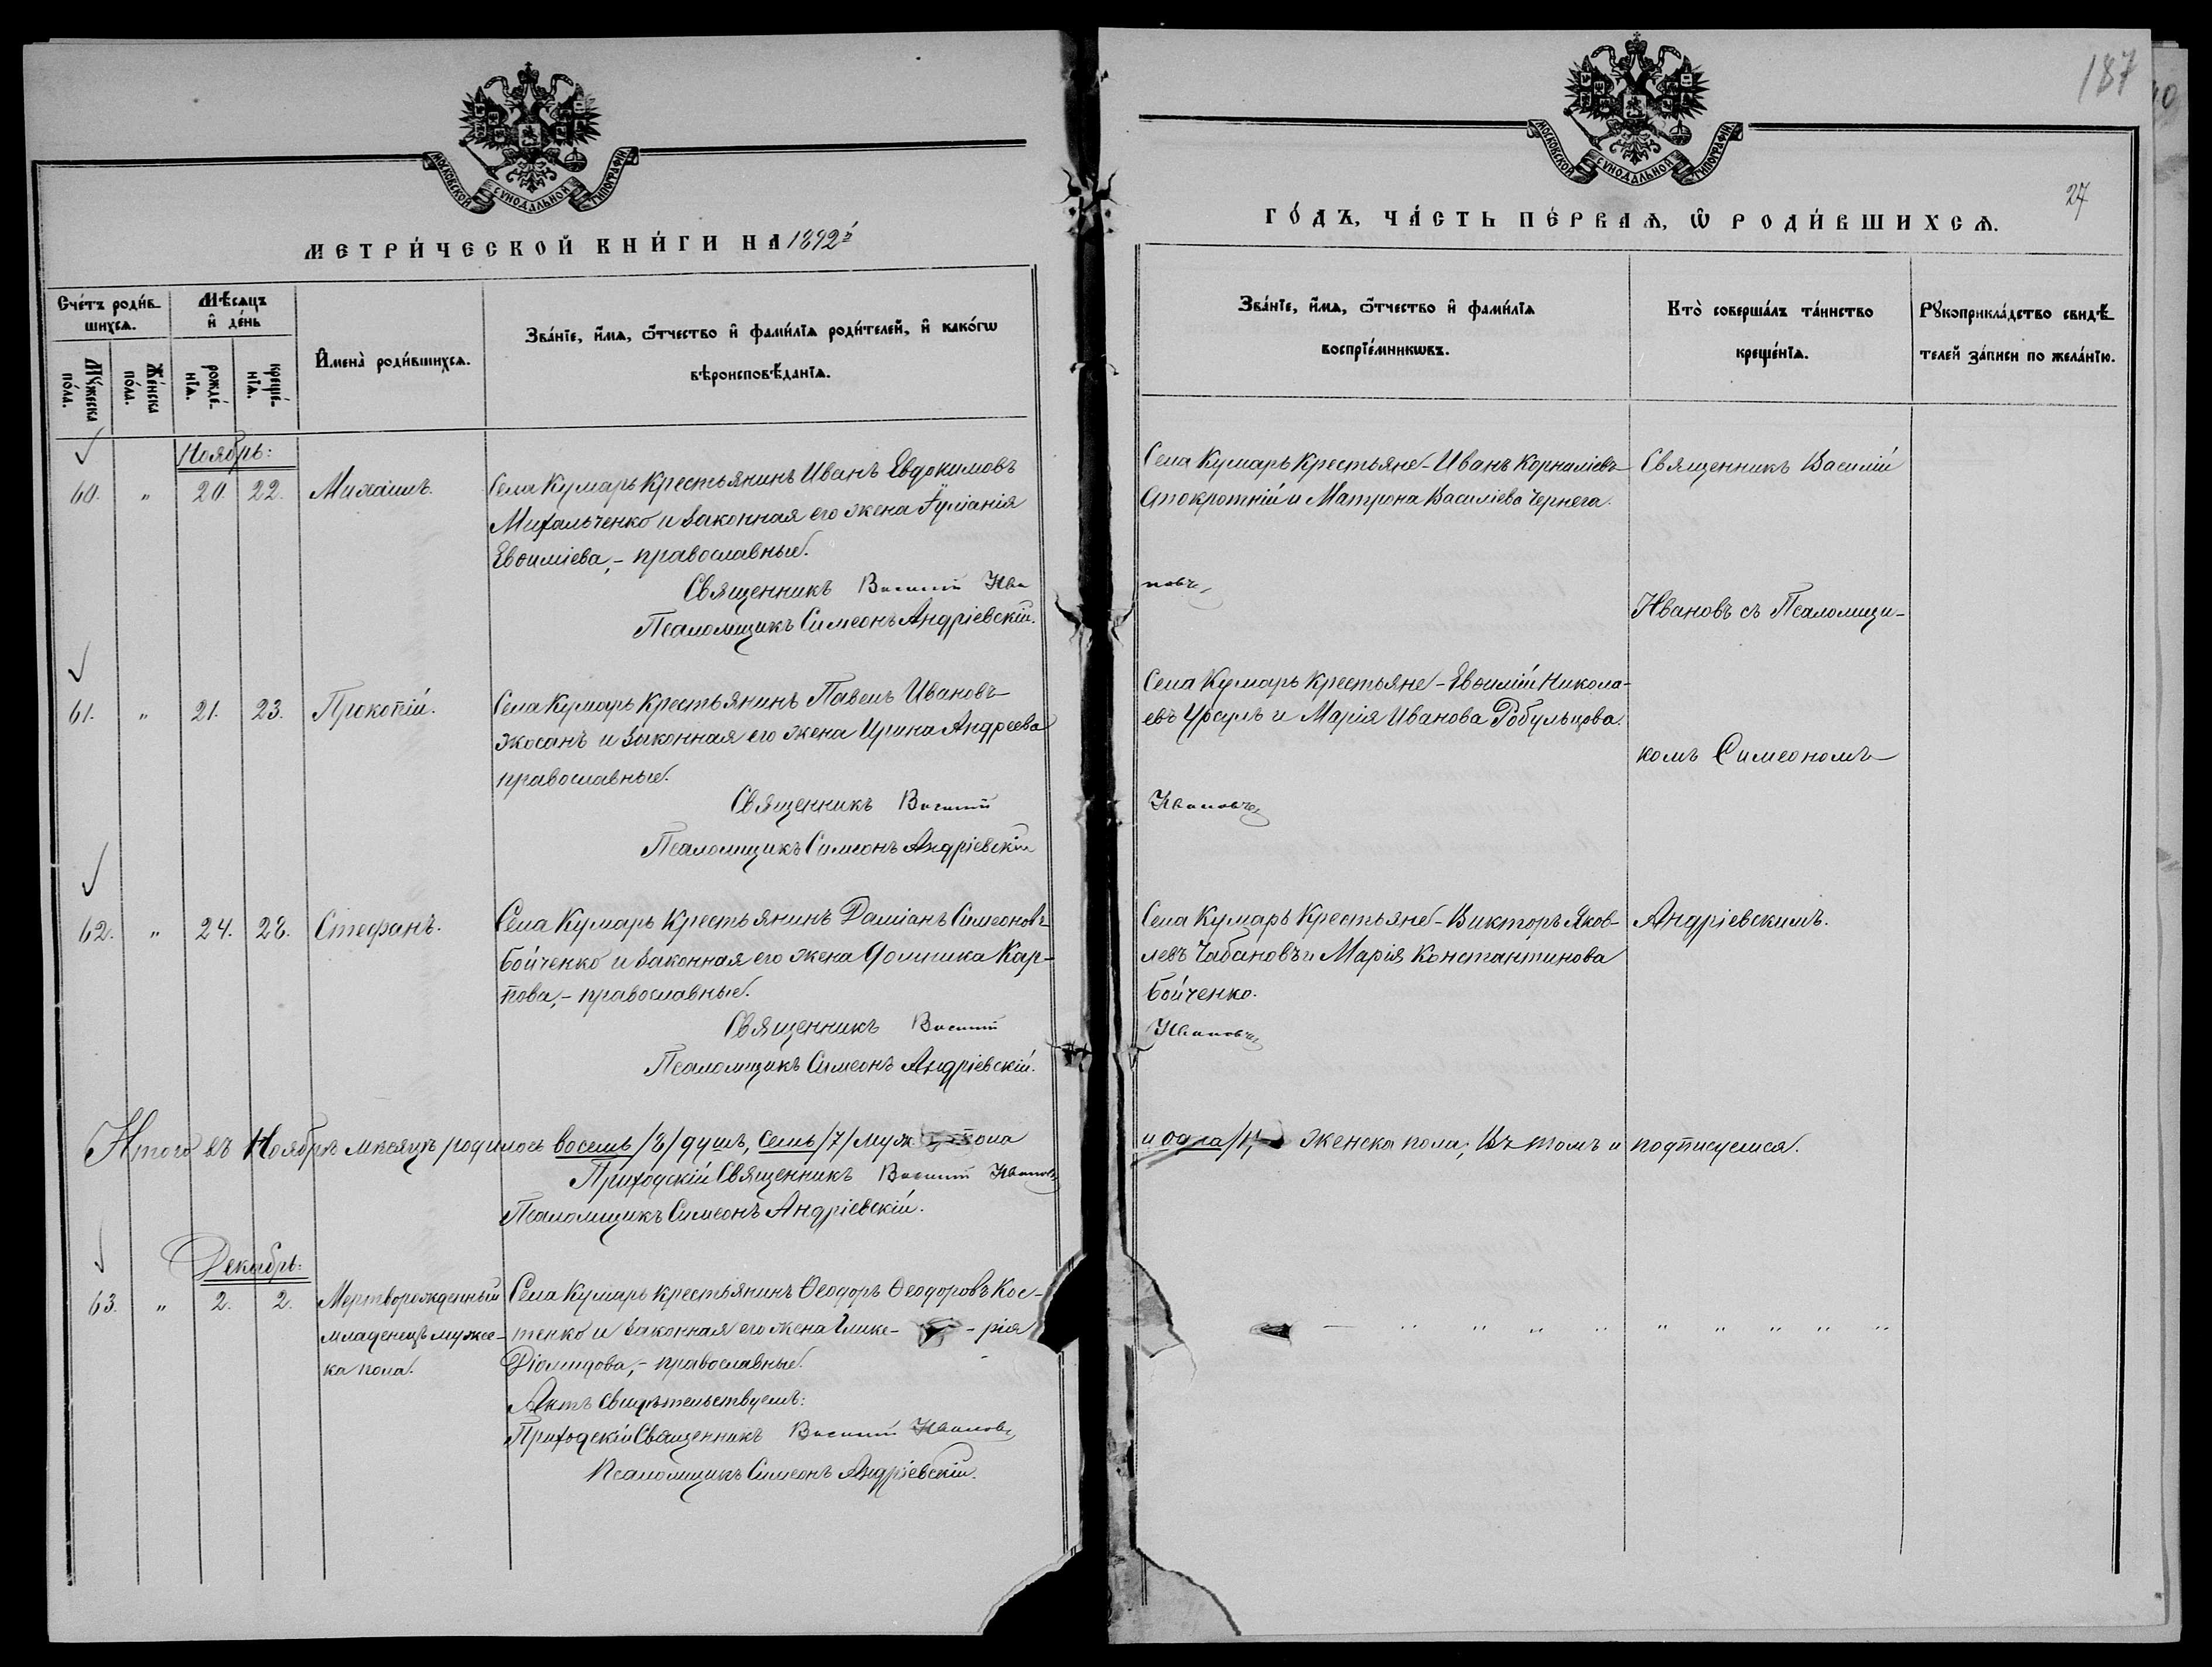 187
27
МОСКОВСКОЙ СѴНОДАЛЬНОЙ ТИПОГРАФІИ
МЕТРИ́ЧЕСКОЙ КНИ́ГИ НА 1892й
МОСКОВСКОЙ СѴНОДАЛЬНОЙ ТИПОГРАФІИ
ГО́ДЪ, ЧА́СТЬ ПЕ́РВАѦ, Ѡ РОДИ́ВШИХСѦ.
Сче́тъ роди́в-
шихсѧ.
Мꙋ́жеска по́ла.
Же́нска по́ла.
Мѣ́сѧцъ
и҆ де́нь
рожде́-
нїѧ.
креще́-
нїѧ.
И҆мена̀ роди́вшихсѧ.
Зва́нїе, и҆́мѧ, ѻ҆́тчество и҆ фами́лїѧ роди́телей, и҆ како́гѡ
вѣроисповѣ́данїѧ.
Зва́нїе, и҆́мѧ, ѻ҆́тчество и҆ фами́лїѧ
воспрїе́мникѡвъ.
Кто̀ соверша́лъ та́инство
креще́нїѧ.
Рꙋкоприкла́дство свидѣ́-
телей за́писи по жела́нїю.
Ноябрь:
60. " 20. 22. Михаилъ.
Села Кумаръ крестьянинъ Иванъ Евдокимовъ
Михальченко и законная его жена Іуліанія
Евѳиміева, - православные.
Священникъ Василій Ива
новъ
Псаломщикъ Симеонъ Андріевскій.
Села Кумаръ крестьяне - Иванъ Корниліевъ
Стокротній и Матрона Василіева Чернега.
Священникъ Василій
Ивановъ съ Псаломщи-
61. " 21. 23. Прокопій.
Села Кумаръ крестьянинъ Павелъ Ивановъ
Жосанъ и законная его жена Ирина Андреева
православные.
Священникъ Василій
Ивановъ
Псаломщикъ Симеонъ Андріевскій
Села Кумаръ крестьяне - Евѳимій Никола-
евъ Урсулъ и Марія Иванова Робульцова.
комъ Симеономъ
62. " 24. 28. Стефанъ.
Села Кумаръ крестьянинъ Даміанъ Симеоновъ
Бойченко и законная его жена Домника Кар-
пова, - православные.
Священникъ Василій
Ивановъ
Псаломщикъ Симеонъ Андріевскій.
Села Кумаръ крестьяне - Викторъ Яков-
левъ Чабановъ и Марія Константинова
Бойченко.
Андріевскимъ.
Итого въ Ноябрѣ мѣсяцѣ родилось восемь /8/ душъ, семь /7/ муж пола
и одна /1/ женска пола; Въ томъ и подписуемся.
Приходскій Священникъ Василій Ивановъ
Псаломщикъ Симеонъ Андріевскій.
Декабрь:
63. " 2. 2. Мертворожденный
младенецъ мужес-
ка пола.
Села Кумаръ крестьянинъ Ѳеодоръ Ѳеодоровъ Кос-
тенко и законная его жена Глике- - рія
Діомидова, - православные.
Актъ свидѣтельствуемъ:
Приходскій Священникъ Василій Ивановъ
Псаломщикъ Симеонъ Андріевскій.
— " " " " " " " " "